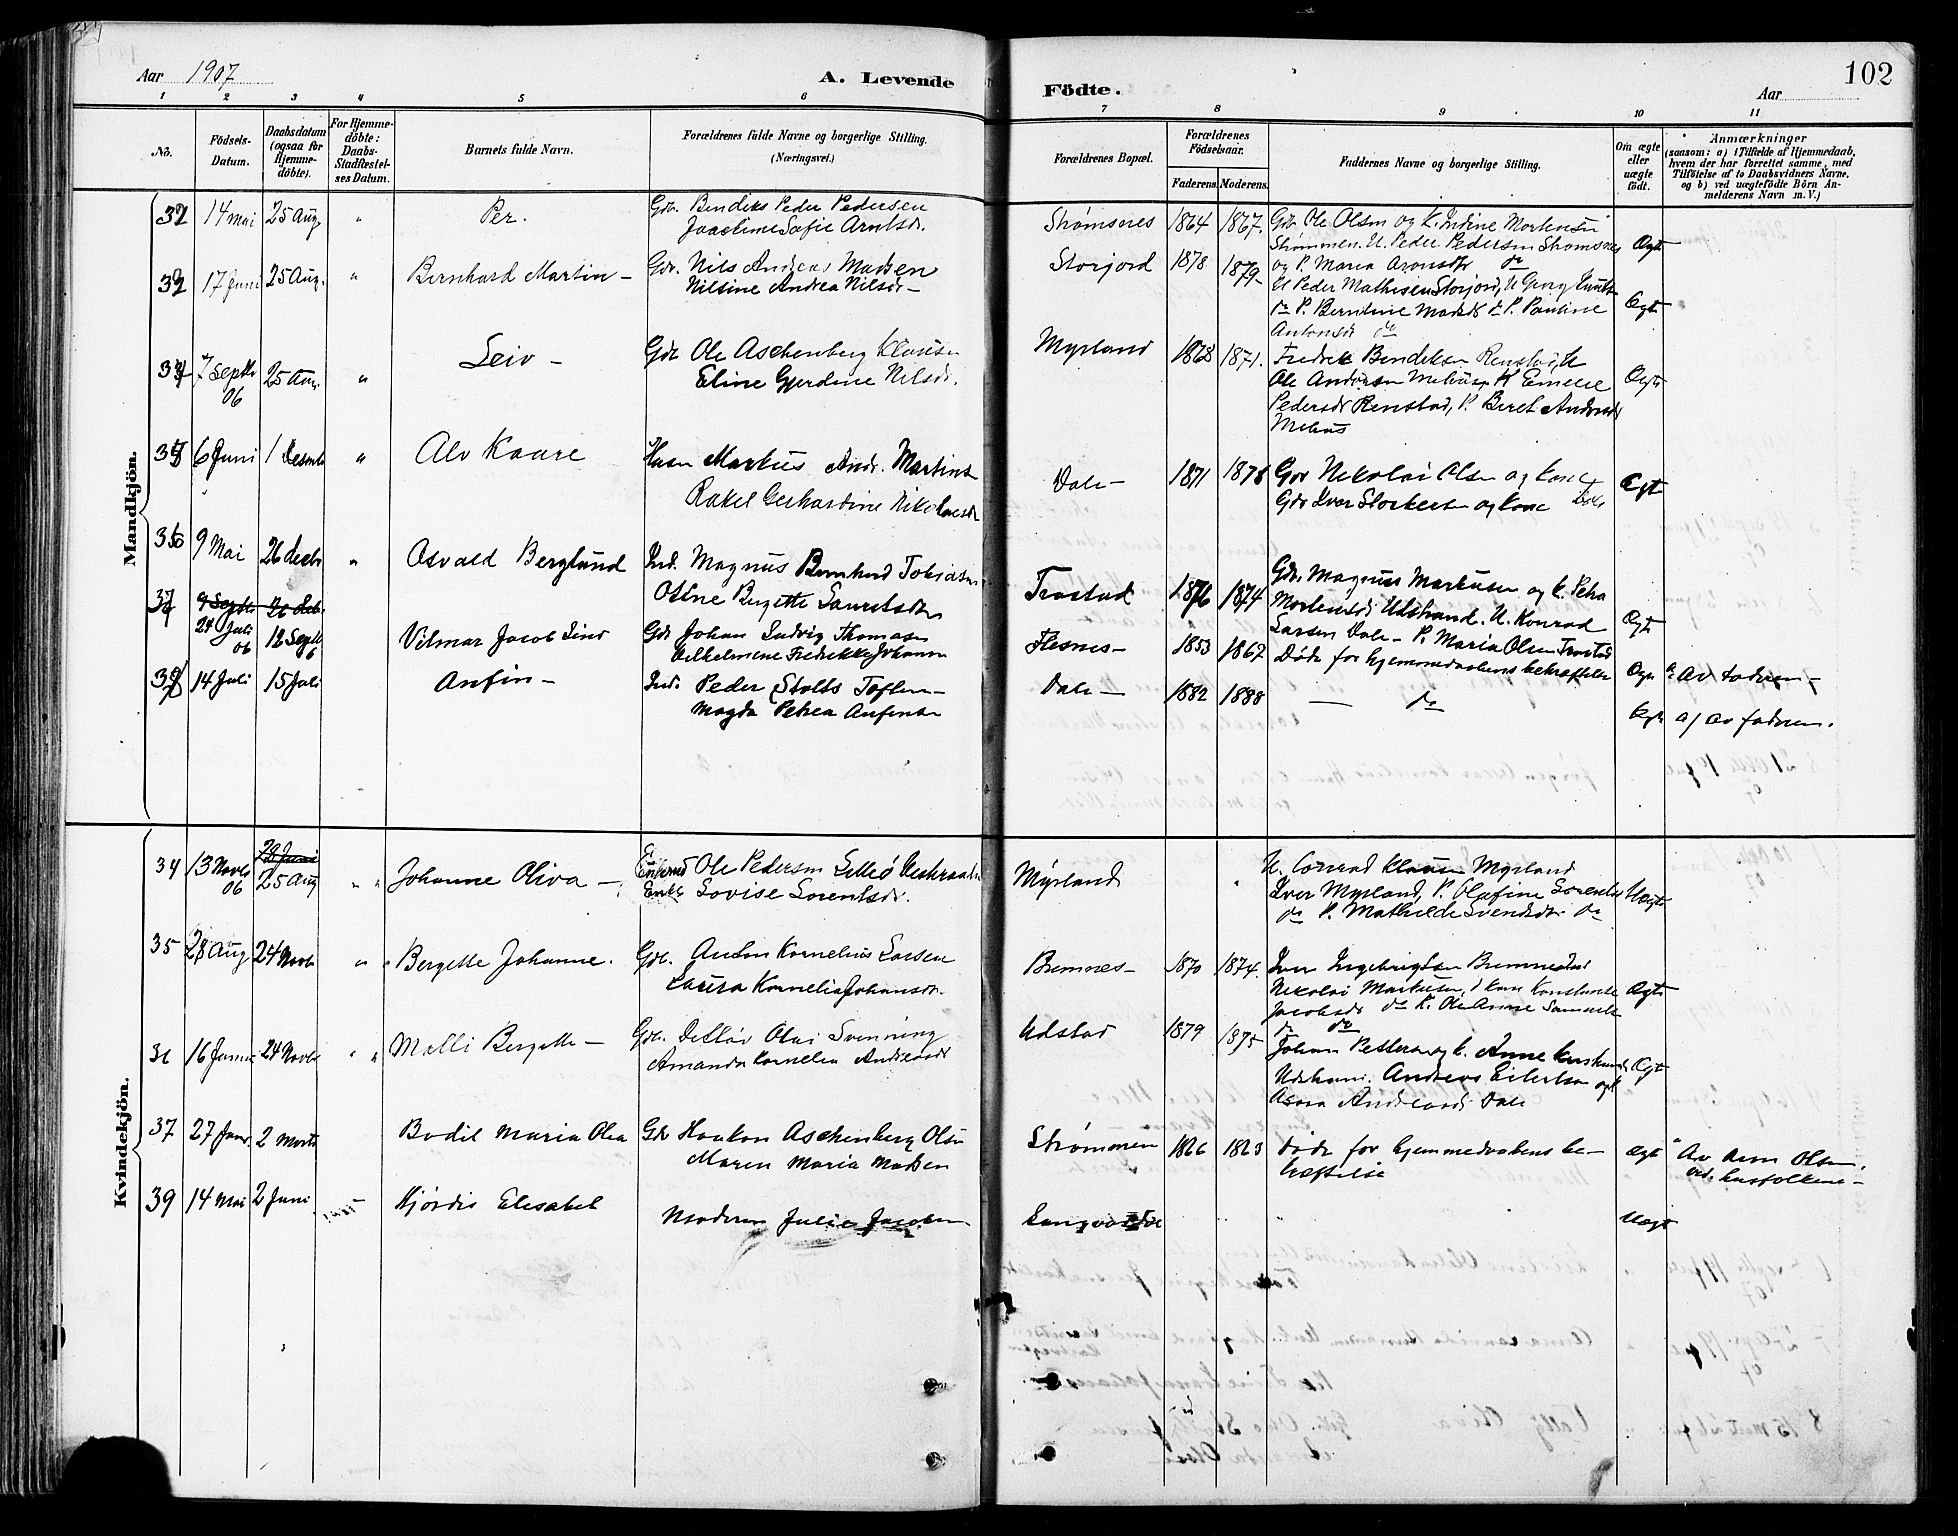 Aar 1907
A. Levende
Födte.
102
Aar
1 2 3 4 5 6 7 8 9 10 11
No.
Födsels-Datum.
Daabsdatum (ogsaa for Hjemme-döbte).
For Hjemme-döbte: Daabs-Stadfæstel-ses Datum.
Barnets fulde Navn.
Forældrenes fulde Navne og borgerlige Stilling.
(Næringsvei.)
Forældrenes Bopæl.
Forældrenes Födselsaar.
Faderens.
Moderens.
Faddernes Navne og borgerlige Stilling.
Om ægte eller uægte födt.
Anmærkninger
(saasom: a) i Tilfælde af Hjemmedaab,
hvem der har forrettet samme, med
Tilföielse af to Daabsvidners Navne,
og b) ved uægtefödte Börn An-
melderens Navn m. V.)
Mandkjön.
14 Mai 25 Aug. " Per. Gdb. Bendiks Peder Pedersen
Sofie Arntsdr.
Strømsnes 1864 1867. Gdb. Ole Olsen og K. Indine Mortensdr
Strømmen. U. Peder Pedersen Strømsnes
og P. Maria Aronsdr do Ægte
17 Juni 25 Aug. " Bernhard Martin - Gdr. Nils Andreas Madsen
Nilsine Andrea Nilsdr -
Storjord 1878 1879 -
U Peder Mathisen Storjord, U Georg
do P. Berntine Madsdr do P. Pauline
Antonsdr do Ægte
7 Septbr 06 25 Aug. " Leiv - Gdb Ole Aschenberg Klausen
Eline Gjerdine Nilsdr.
Myrland 1868 1871. Fredrik Bendiksen Renstad, U
Ole Andersen Mehus, K Emelie
Pedersdr Renstad, P. Beret Andersdr
Mehus Ægte
35 6 Juni 1 Desmb " Alv Kaare Markus Andr. Martins
Rakel Gerhardine Nikolaisdr
Dale - 1871 1878 Gbr Nikolai Olsen og Kone
Gdb Iver Storkersen og Kone Ægte
36 9 Mai 26 Decbr " Osvald Berglund Ind. Magnus Bernhard Tobiasen
Oline Birgitte Lauritsdr
Trastad 1876 1874 Gdr. Magnus Markusen og k. Petra
Mortensdr Udstrand. U. Konrad
Larsen Dale - P. Maria Olsen Trastad Ægte
37 9 Septbr 26 Decb.
24 Juli 06 12 Septb 6 Vilmar Jacob Lind Gdb Johan Ludvig Thomasen
Vilhelmine Fredrikke Johann
Flesnes - 1853 1867 Døde før hjemmedaabens bekræftelse Ægte a. Av faderen -
14 Juli 15 Juli Anfin - Ind. Peder Stolts Toften -
Magda Petrea Anfinsen
Dale - 1882 1888 — do Ægte a) av faderen.
Kvindekjön.
34 13 Novbr 06 28 Juni 25 Aug " " Johanne Oliva - Enkemd Ole Pedersen Lillø
Enke Lovise Lorentsdr.
Myrland " U. Conrad Klausen Myrland
Iver Myrland, P. Olafine Lorentsdr
do P. Mathilde Svendsdr do Uægte
35 28 Aug 24 Novbr " " Bergette Johanne. Gdb. Anton Kornelius Larsen
Laura Kornelia Johansdr.
Bremnes - 1870 1874. Iver Ingebrigtsen Bremnes
Nikolai Markusen,
Jacobsdr do Ægte
16 Januar 24 Novbr " " Malli Bergette - Gdb. Detlav Olai Svenning
Amanda Kornelia Andreasdr
Udstad 1879 1875 Johan Pettersen og k. Anne
Andreas Eilertsen og k
Andreasdr Dale Ægte
37 27 Janr. 2 Marts Bodil Maria Olea Gdb Haakon Aschenberg Olsen
Maren Maria Madsen
Strømmen 1866 1863 Døde før hjemmedaabens be-
kræftelse ægte a Av Arn Olsen.
39 14 Mai 2 Juni Hjørdis Elisabet
Moderen Julie Jacobsen
Langvasdal Uægt